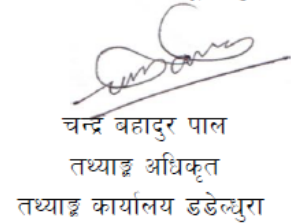 चन्द्र बहादुर पाल
तथ्याङ्क अधिकृत
तथ्याङ्क कार्यालय डडेल्धुरा